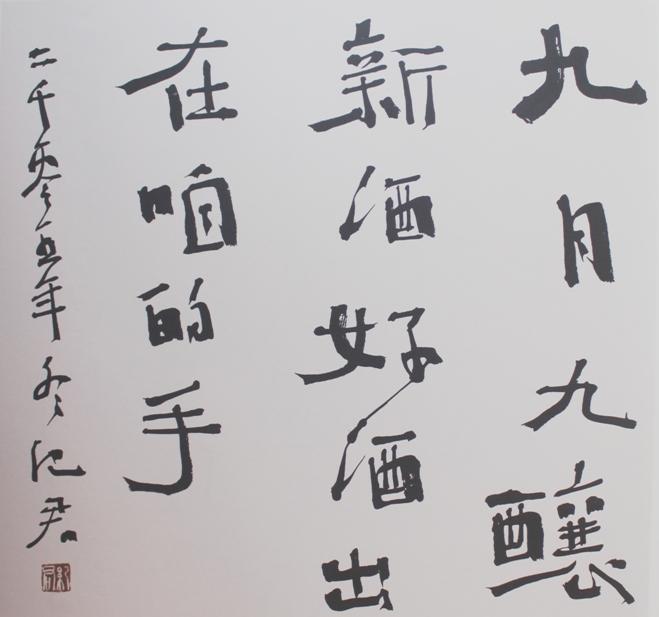 九月九釀
新酒好酒出
在咱的手
二千零五年冬纪君